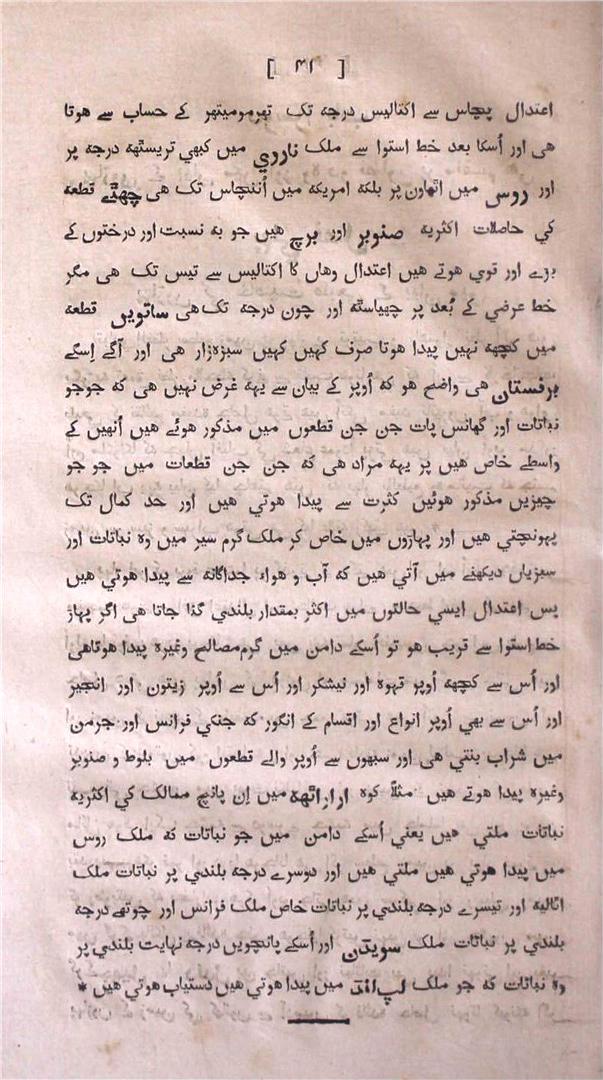 [ ۳۱ ]
اعتدال پچاس سے اکتالیس درجہ تک تھرمومیتھر کے حساب سے ھوتا
ھی اور اُسکا بعد خط استوا سے ملک نارري میں کبھي تریستھہ درجہ پر
اور روس میں اتھاون پر بلکہ امریکہ میں اُننچاس تک ھی چھٹے قطعہ
کي حاصلات اکثریہ صنوبر اور برچ ھیں جو بہ نسبت اور درختوں کے
بڑے اور قوي ھوتے ھیں اعتدال وھاں کا اکتالیس سے تیس تک ھی مگر
خط عرضي کے بُعد پر چھیاستھ اور چون درجہ تک ھی ساتویں قطعہ
میں کچھہ نہیں پیدا ھوتا صرف کہیں کہیں سبزہزار ھی اور آگے اِسکے
برفستان ھی واضح ھو کہ اُوپر کے بیان سے یہہ غرض نہیں ھی کہ جوجو
نباتات اور گھانس پات جن جن قطعوں میں مذکور ھوئے ھیں اُنھیں کے
واسطے خاص ھیں پر یہہ مراد ھی کہ جن جن قطعات میں جو جو
چیزیں مذکور ھوئیں کثرت سے پیدا ھوتي ھیں اور حد کمال تک
پہونچتي ھیں اور پہاڑوں میں خاص کر ملک گرم سیر میں وہ نباتات اور
سبزیاں دیکھنے میں آتي ھیں کہ آب و ھواء جداگانہ سے پیدا ھوتي ھیں
پس اعتدال ایسي حالتوں میں اکثر بمقدار بلندي گنا جاتا ھی اگر پہاڑ
خط استوا سے قریب ھو تو اُسکے دامن میں گرم مصالح وغیرہ پیدا ھوتاھی
اور اُس سے کچھہ اُوپر قہوہ اور نیشکر اور اُس سے اُوپر زیتون اور انجیر
اور اُس سے بھي اُوپر انواع اور اقسام کے انگور کہ جنکي فرانس اور جرمن
میں شراب بنتي ھی اور سبھوں سے اُوپر والے قطعوں میں بلوط و صنوبر
وغیرہ پیدا ھوتے ھیں مثلاً کوہ اراراتھہ میں اِن پانچ ممالک کي اکثریہ
نباتات ملتي ھیں یعني اُسکے دامن میں جو نباتات کہ ملک روس
میں پیدا ھوتي ھیں ملتي ھیں اور دوسرے درجہ بلندي پر نباتات ملک
اتالیہ اور تیسرے درجہ بلندي پر نباتات خاص ملک فرانس اور چوتھے درجہ
بلندي پر نباتات ملک سویتن اور اُسکے پانچویں درجہ نہایت بلندي پر
وہ نباتات کہ جو ملک لپ لانڈ میں پیدا ھوتي ھیں دستیاب ھوتي ھیں *